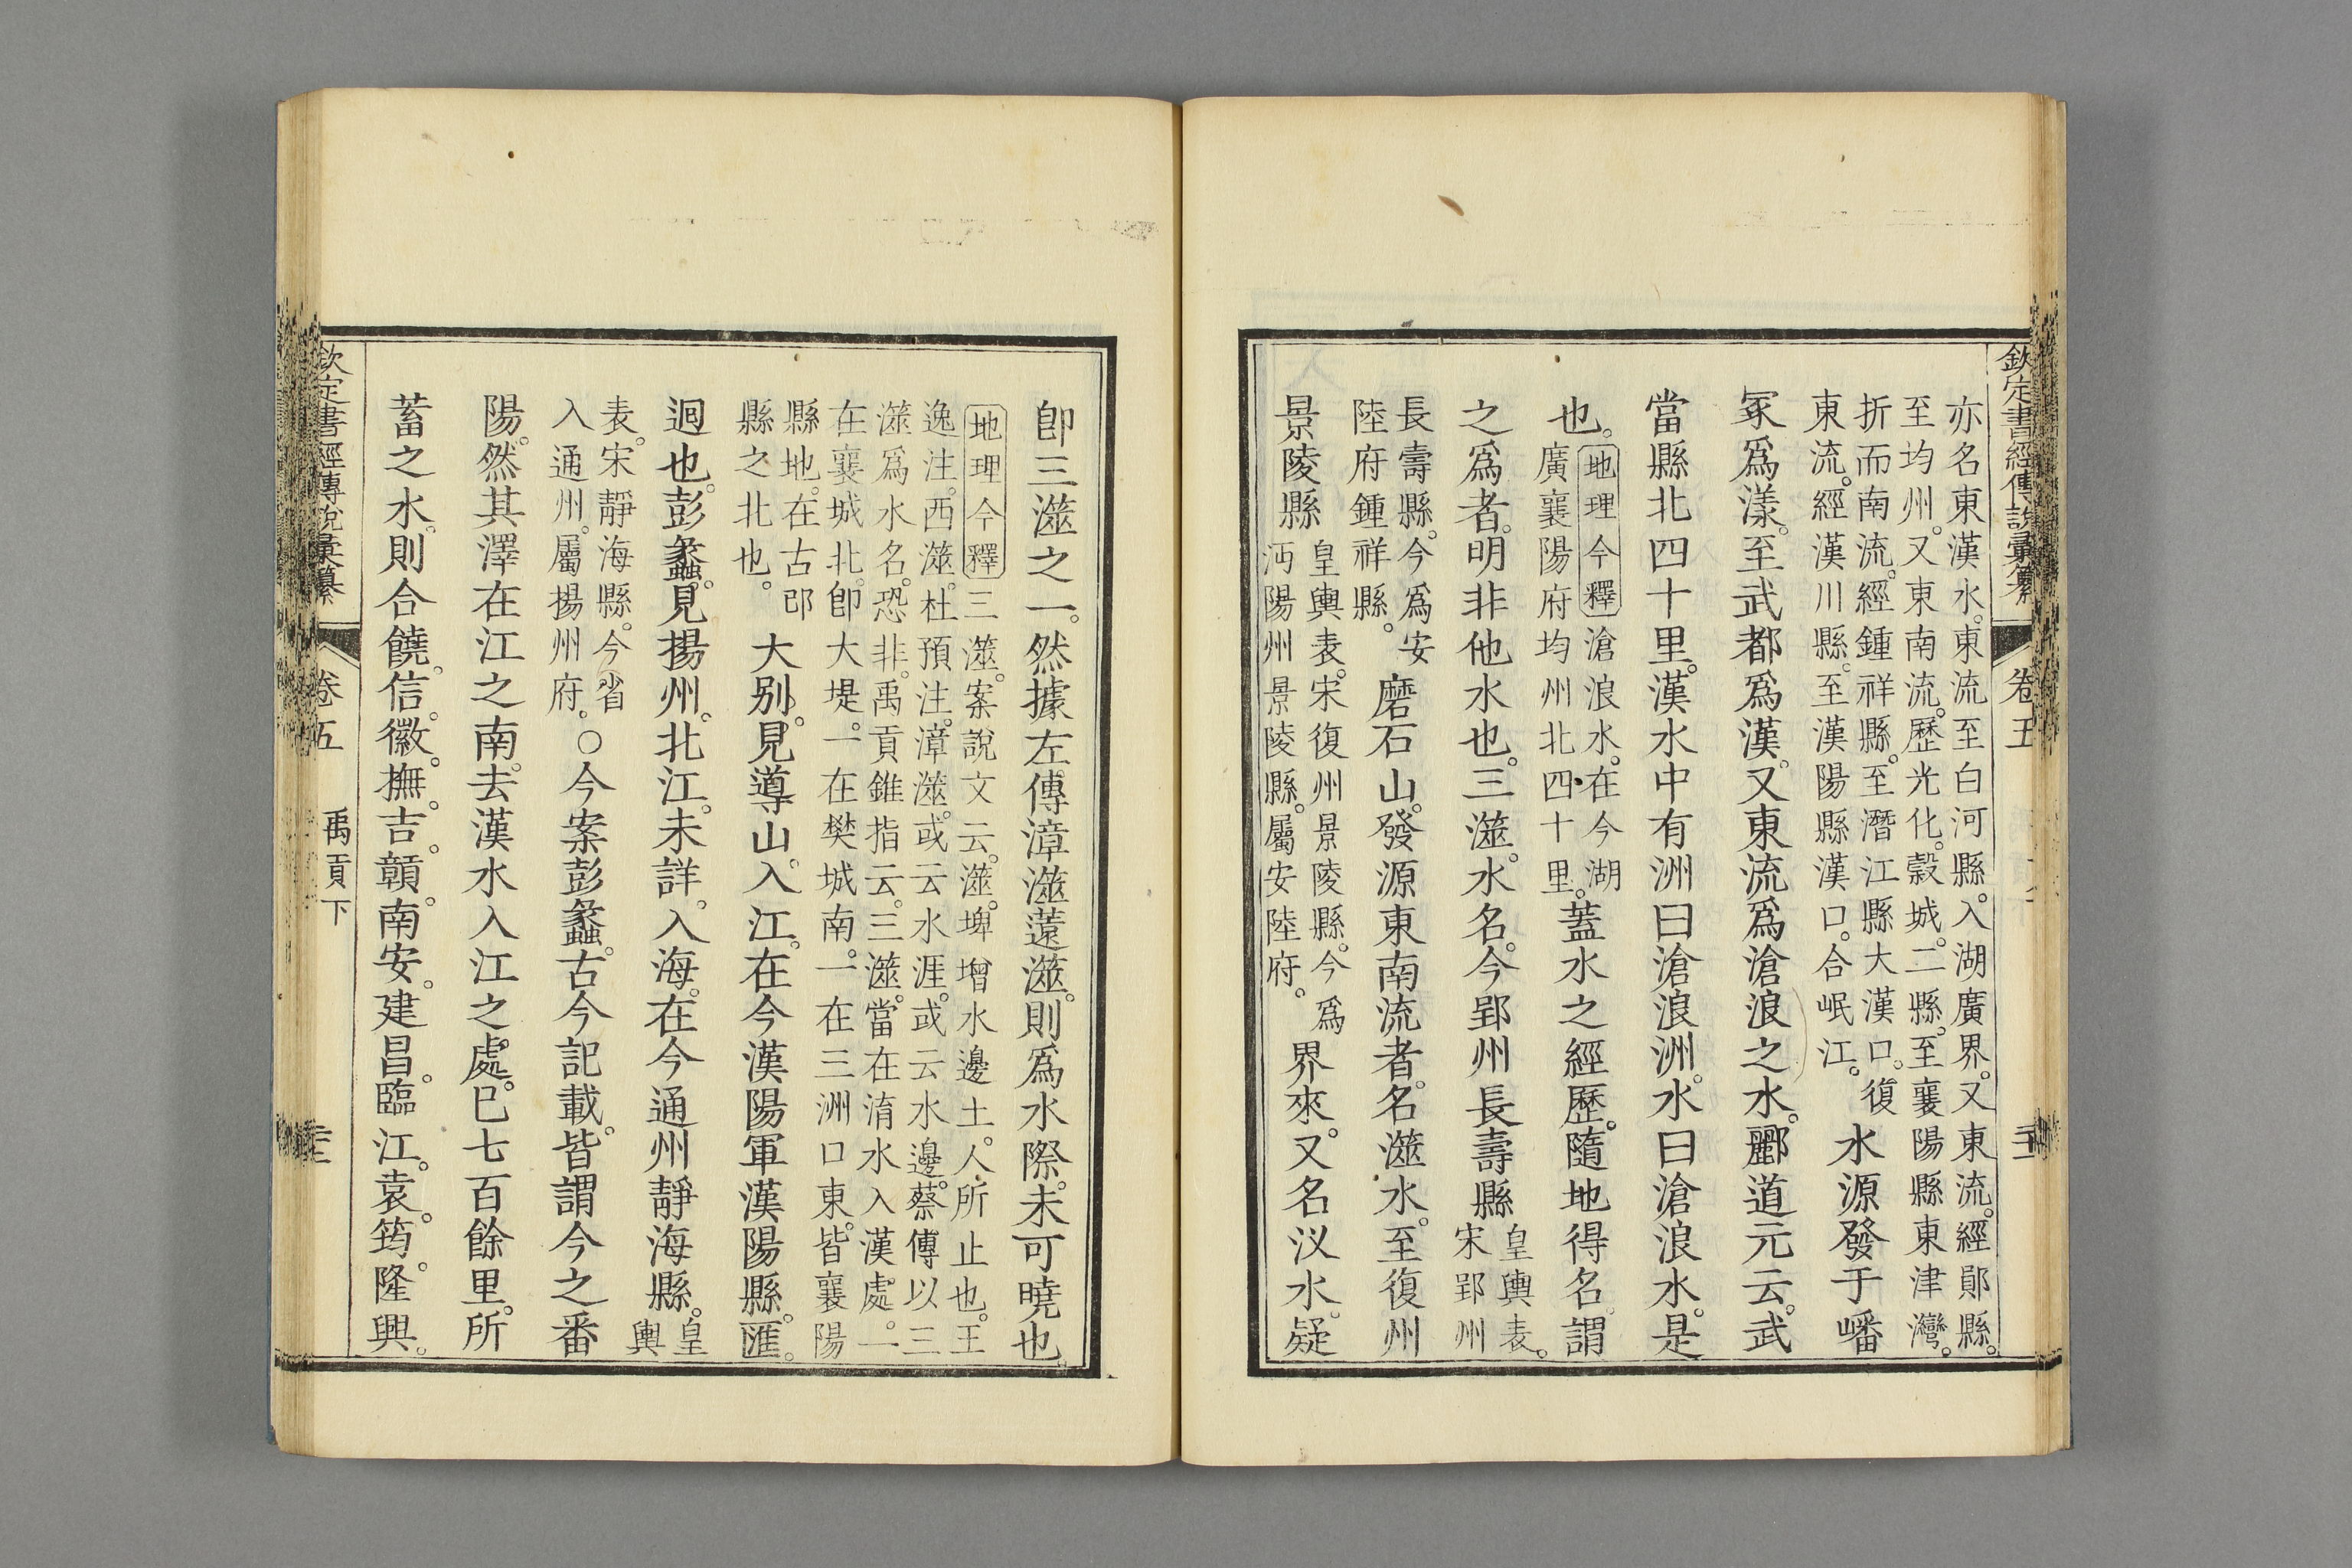 欽定書經傳說彙纂 卷五
亦名東漢水。東流至白河縣。入湖廣界。又東流。經鄖縣。
至均州。又東南流。歷光化。穀城。二縣。至襄陽縣東津灣。
折而南流。經鍾祥縣。至潛江縣大漢口。復
東流。經漢川縣。至漢陽縣漢口。合岷江。
水源發于嶓
冢爲漾。至武都爲漢。又東流爲滄浪之水。酈道元云。武
當縣北四十里。漢水中有洲曰滄浪洲。水曰滄浪水。是
也。
地理今釋 滄浪水。在今湖
廣襄陽府均州北四十里。
蓋水之經歷。隨地得名。謂
之爲者。明非他水也。三澨。水名。今郢州長壽縣
皇輿表。
宋郢州
長壽縣。今爲安
陸府鍾祥縣。
磨石山。發源東南流者。名澨水。至復州
景陵縣
皇輿表。宋復州景陵縣。今爲
沔陽州景陵縣。屬安陸府。
界來。又名汊水。疑
卽三澨之一。然據左傳漳澨薳澨。則爲水際。未可曉也。
地理今釋 三澨。案說文云。澨。埤增水邊土。人所止也。王
逸注。西澨。杜預注。漳澨。或云水涯。或云水邊。蔡傳以三
澨爲水名。恐非。禹貢錐指云。三澨。當在淯水入漢處。一
在襄城北。卽大堤。一在樊城南。一在三洲口東。皆襄陽
縣地。在古邔
縣之北也。
大別。見導山。入江。在今漢陽軍漢陽縣。匯。
迴也。彭蠡。見揚州。北江。未詳。入海。在今通州靜海縣。
皇
輿
表。宋靜海縣。今省
入通州。屬揚州府。
○今案彭蠡。古今記載。皆謂今之番
陽。然其澤在江之南。去漢水入江之處。已七百餘里。所
蓄之水。則合饒。信。徽。撫。吉。贛。南安。建昌。臨江。袁。筠。隆興。
欽定書經傳說彙纂 卷五 禹貢下